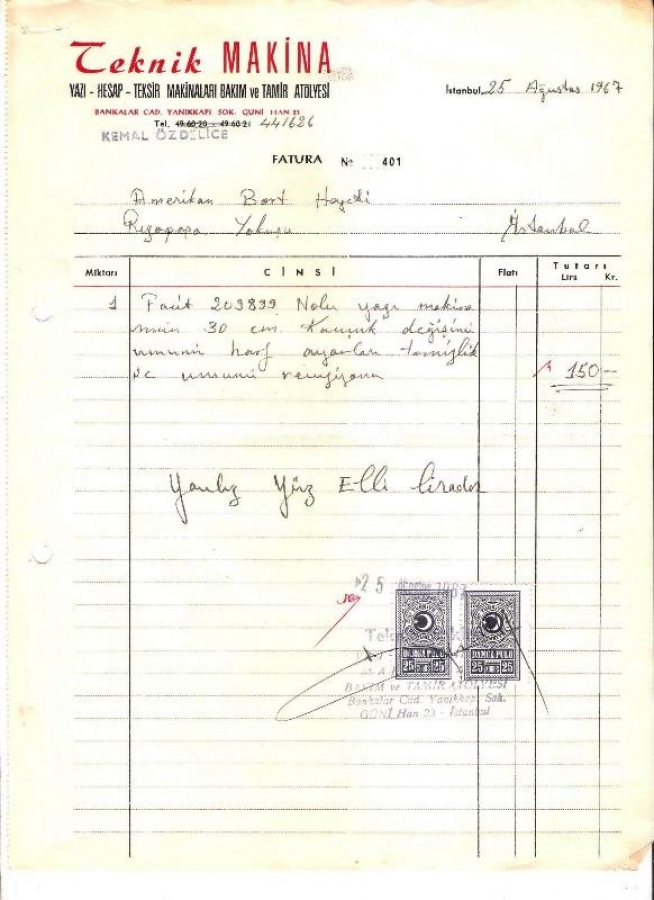 Teknik MAKİNA
YAZI - HESAP - TEKSİR MAKİNALARI BAKIM ve TAMİR ATÖLYESİ
İstanbul, 25 Ağustos 1967
BANKALAR CAD. YANIKKAPI SOK. GÜNİ HAN 23
Tel. 49 60 20 - 49 60 21 441626
KEMAL ÖZDELİCE
FATURA No 401
Amerikan Bort Heyeti
Rızapaşa Yokuşu İstanbul
Miktarı CİNSİ Fiatı Tutarı
Lira Kr.
1 Facit 209899 Nolu yazı makina
30 cm. Kauçuk değişimi
umumi harf ayarları temizlik
ve umumi revizyonu 150-
Yanlız Yüz Elli liradır
25 Ağustos 1967
DAMGA PULU DAMGA PULU
25 25 25 25
BAKIM ve TAMİR ATÖLYESİ
Bankalar Cad. Yanıkkapı Sok.
GÜNİ Han 23 - İstanbul